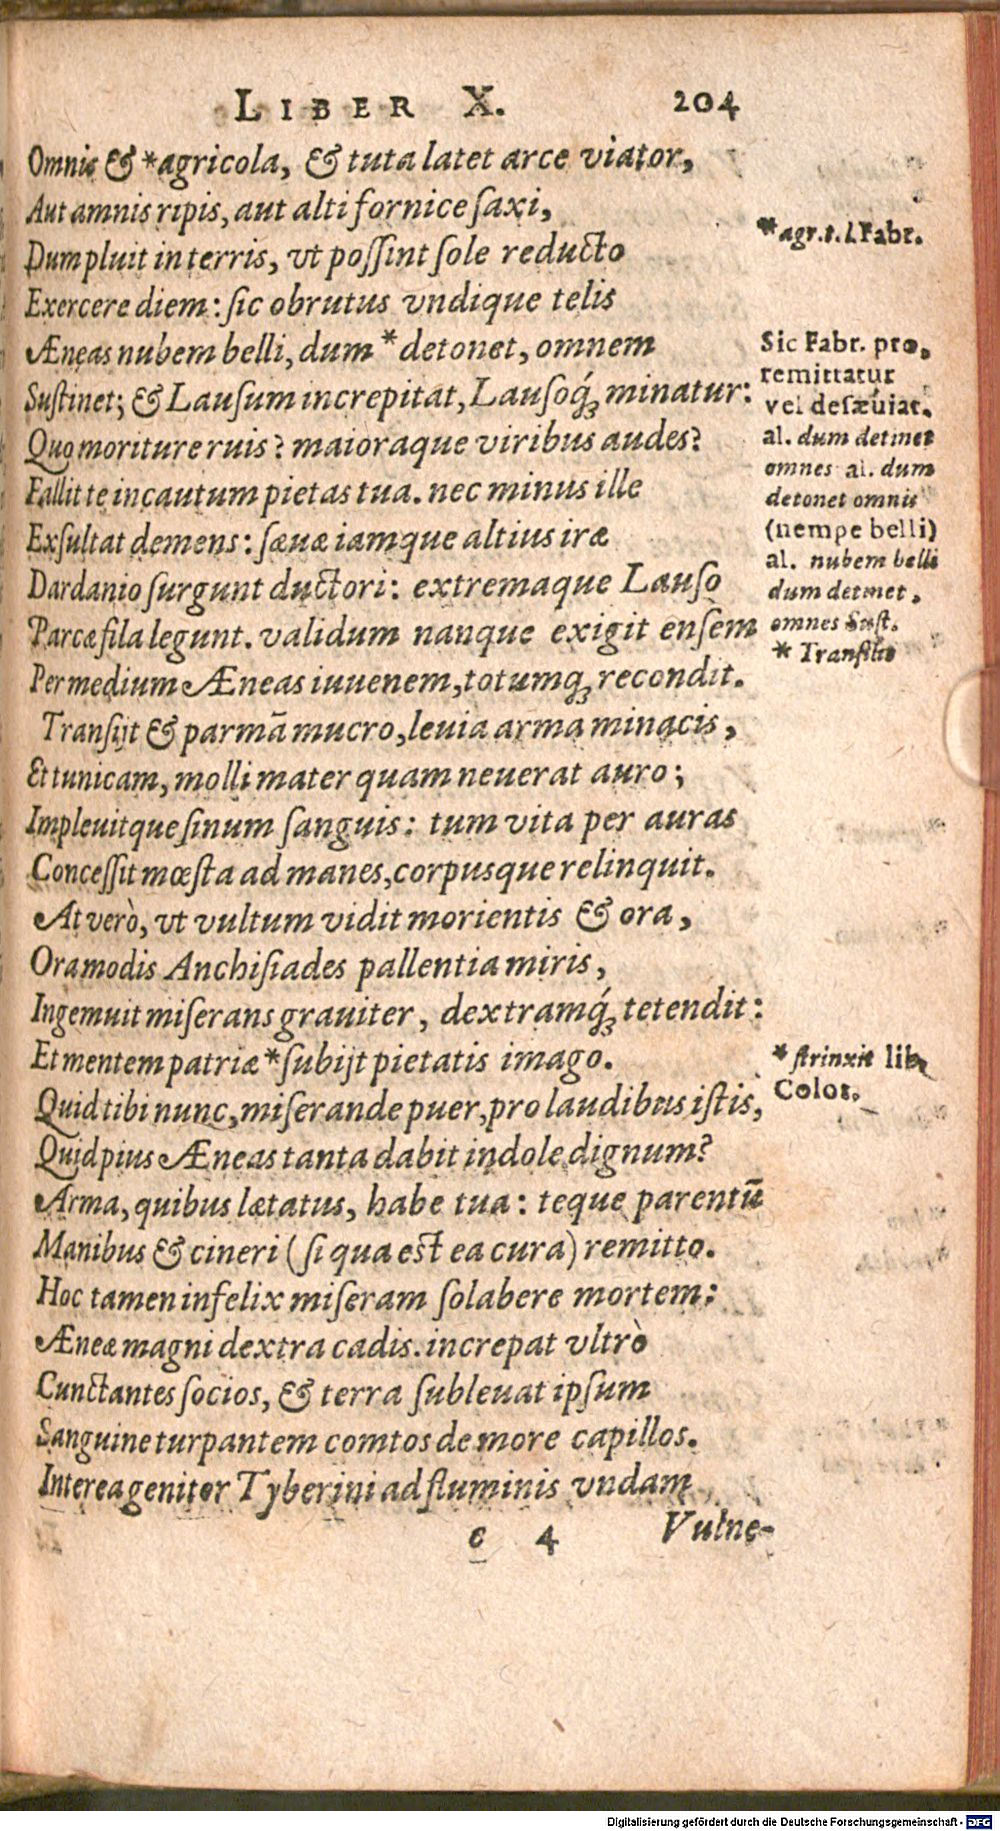 LIBER X. 204
Omnis & *agricola, & tuta latet arce viator,
Aut amnis ripis, aut alti fornice ſaxi,
Dum pluit in terris, vt poſſint ſole reducto
Exercere diem: ſic obrutus vndique telis
Æneas nubem belli, dum *detonet, omnem
Suſtinet; & Lauſum increpitat, Lauſoq́; minatur:
Quo moriture ruis? maioraque viribus audes?
Fallit te incautum pietas tua. nec minus ille
Exſultat demens: ſæuæ iamque altius iræ
Dardanio ſurgunt ductori: extremaque Lauſo
Parcæ fila legunt. validum nanque exigit enſem
Per medium Æneas iuuenem, totumq; recondit.
Tranſijt & parmā mucro, leuia arma minacis,
Et tunicam, molli mater quam neuerat auro;
Impleuitque ſinum ſanguis: tum vita per auras
Conceſſit mœſta ad manes, corpusque relinquit.
At verò, vt vultum vidit morientis & ora,
Ora modis Anchiſiades pallentia miris,
Ingemuit miſerans grauiter, dextramq́; tetendit:
Et mentem patriæ *ſubijt pietatis imago.
Quid tibi nunc, miſerande puer, pro laudibus iſtis,
Quid pius Æneas tanta dabit indole dignum?
Arma, quibus lætatus, habe tua: teque parentū
Manibus & cineri (ſi qua eſt ea cura) remitto.
Hoc tamen infelix miſeram ſolabere mortem:
Æneæ magni dextra cadis. increpat vltrò
Cunctantes ſocios, & terra ſubleuat ipſum
Sanguine turpantem comtos de more capillos.
Interea genitor Tyberini ad fluminis vndam
c 4 Vulne-
*agr. t. l. Fabr.
Sic Fabr. pro,
remittatur
vel deſæuiat.
al. dum detinet
omnes al. dum
detonet omnis
(nempe belli)
al. nubem belli
dum detinet,
omnes Suſt.
* Tranſilit
* ſtrinxit lib.
Colot.
Digitalisierung gefördert durch die Deutsche Forschungsgemeinschaft - DFG